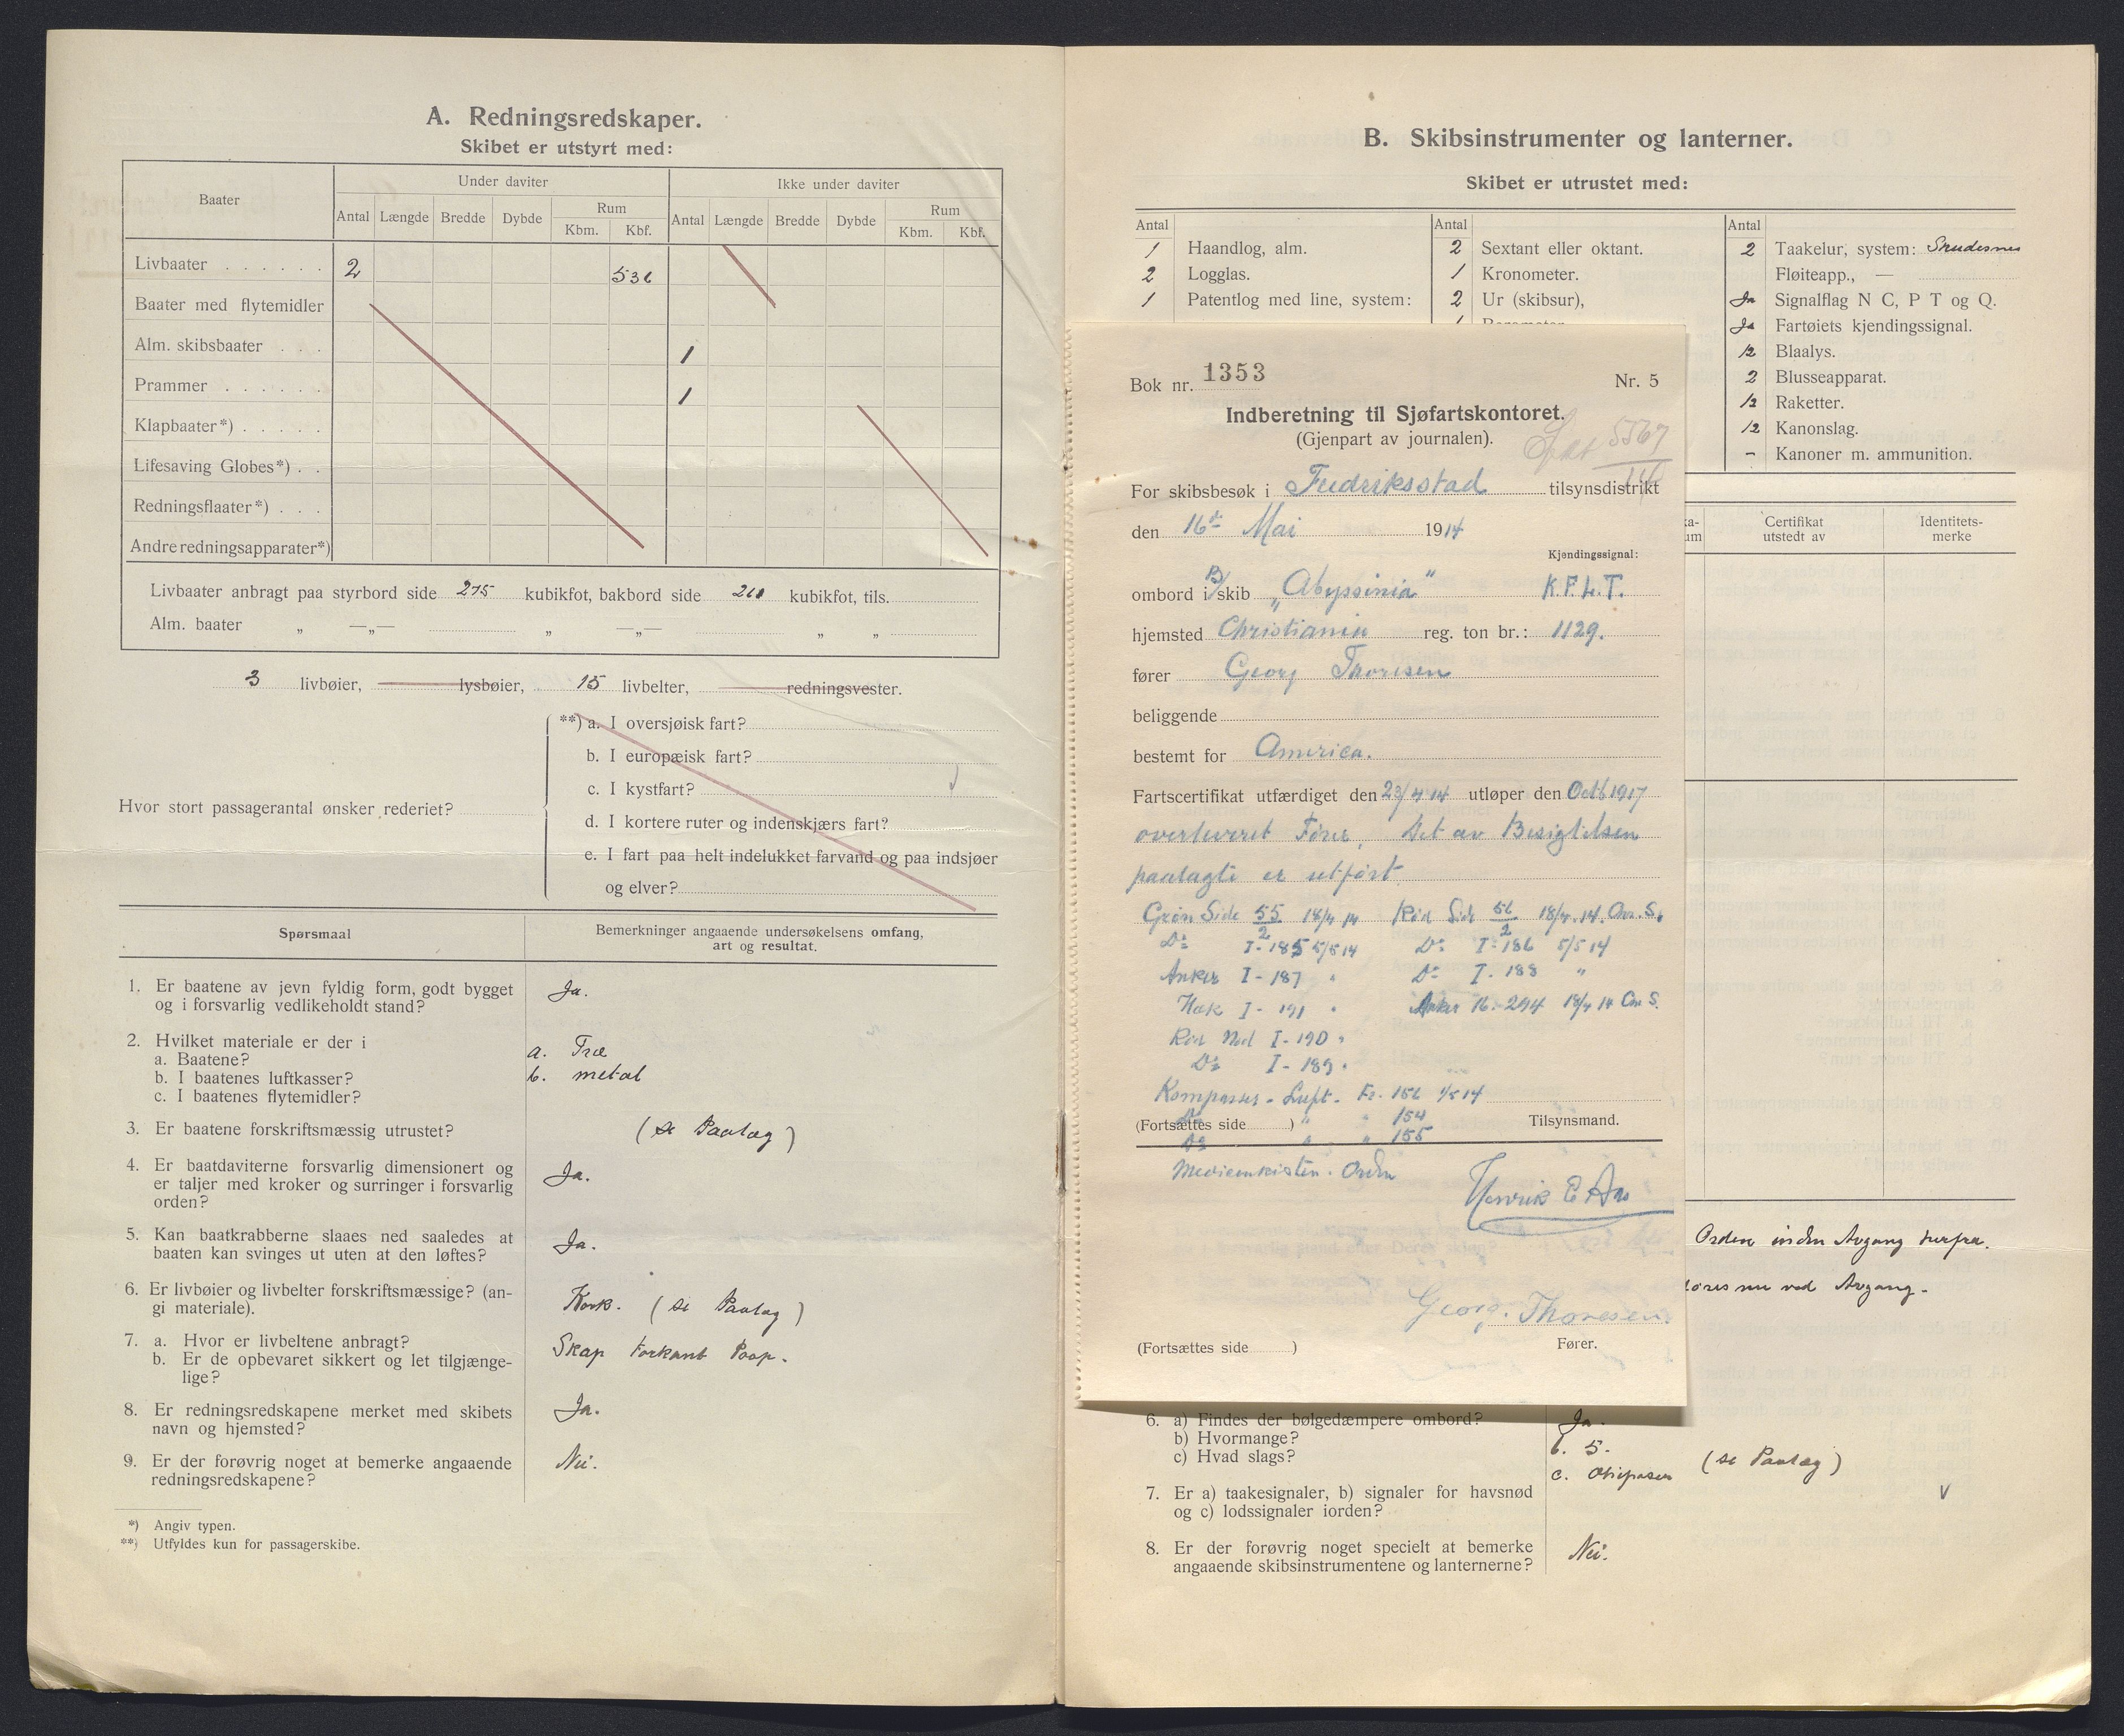 A. Redningsredskaper.
Skibet er utstyrt med:
Baater
Under daviter
Ikke under daviter
Antal Længde Bredde Dybde Rum Kbm. Kbf.
Antal Længde Bredde Dybde Rum Kbm. Kbf.
Livbaater . . . . . . 2 536
Baater med flytemidler
Alm. skibsbaater . . . 1
Prammer . . . . . . 1
Klapbaater*) . . . . .
Lifesaving Globes*) . .
Redningsflaater*) . . .
Andre redningsapparater*)
Livbaater anbragt paa styrbord side 275 kubikfot, bakbord side 261 kubikfot, tils.
Alm. baater „ —„— „ —„— „ „
3 livbøier, lysbøier, 15 livbelter, redningsvester.
Hvor stort passagerantal ønsker rederiet?
**) a. I oversjøisk fart?
b. I europæisk fart?
c. I kystfart?
d. I kortere ruter og indenskjærs fart?
e. I fart paa helt indelukket farvand og paa indsjøer
og elver?
Spørsmaal
Bemerkninger angaaende undersøkelsens omfang,
art og resultat.
1. Er baatene av jevn fyldig form, godt bygget
og i forsvarlig vedlikeholdt stand?
Ja.
2. Hvilket materiale er der i
a. Baatene?
a. Træ
b. I baatenes luftkasser?
b. metal
c. I baatenes flytemidler?
3. Er baatene forskriftsmæssig utrustet?
(se Paalæg)
4. Er baatdaviterne forsvarlig dimensionert og
er taljer med kroker og surringer i forsvarlig
orden?
Ja.
5. Kan baatkrabberne slaaes ned saaledes at
baaten kan svinges ut uten at den løftes?
Ja.
6. Er livbøier og livbelter forskriftsmæssige? (an-
gi materiale).
Kork. (se Paalæg)
7. a. Hvor er livbeltene anbragt?
Skap Forkant Poop.
b. Er de opbevaret sikkert og let tilgjænge-
lige?
8. Er redningsredskapene merket med skibets
navn og hjemsted?
Ja.
9. Er der forøvrig noget at bemerke angaaende
redningsredskapene?
Nei.
*) Angiv typen.
**) Utfyldes kun for passagerskibe.
B. Skibsinstrumenter og lanterner.
Skibet er utrustet med:
Antal Antal Antal
1 Haandlog, alm. 2 Sextant eller oktant. 2 Taakelur, system: Skudesnes
2 Logglas. 1 Kronometer. Fløiteapp., —
1 Patentlog med line, system: 2 Ur (skibsur), Ja Signalflag N C, P T og Q.
Ja Fartøiets kjendingssignal.
12 Blaalys.
2 Blusseapparat.
12 Raketter.
12 Kanonslag.
– Kanoner m. ammunition.
Certifikat
utstedt av
Identitets-
merke
Bok nr. 1353 Nr. 5
Indberetning til Sjøfartskontoret.
(Gjenpart av journalen).
5567
For skibsbesøk i Fredriksstad tilsynsdistrikt
den 16de Mai 1914
Kjendingssignal:
ombord i B/skib „Abyssinia“ K.F.L.T.
hjemsted Christiania reg. ton br.: 1129.
fører Georg Thoresen
beliggende
bestemt for America.
Fartscertifikat utfærdiget den 23/4 14 utløper den Octb 1917
overleveret Fører, det av Besigtelsen
paalagte er utført.
Grøn Side 55/2 18/4 14 Rød Side 56/2 18/4. 14. Chr. S.
Do I-185 5/5 14 Do I-186 5/5 14
Anker I-187 " Do I-188 "
Hæk I-191 " Anker 16-294 18/4 14 Chr S.
Rød Nød I-190 "
Do I-189 "
Kompasser - Luft. Fr. 156 1/5 14
Do " " 154
(Fortsættes side ) Tilsynsmand.
Do " " 155
Medicinkisten. Orden
Henrik E Aas
Georg. Thoresen
(Fortsættes side ) Fører.
Orden inden Avgang herfra.
ved Avgang.
6. a) Findes der bølgedæmpere ombord?
Ja.
b) Hvormange?
b. 5.
c) Hvad slags?
c. Olieposer (se Paalæg)
7. Er a) taakesignaler, b) signaler for havsnød
og c) lodssignaler iorden?
8. Er der forøvrig noget specielt at bemerke
angaaende skibsinstrumentene og lanternerne?
Nei.